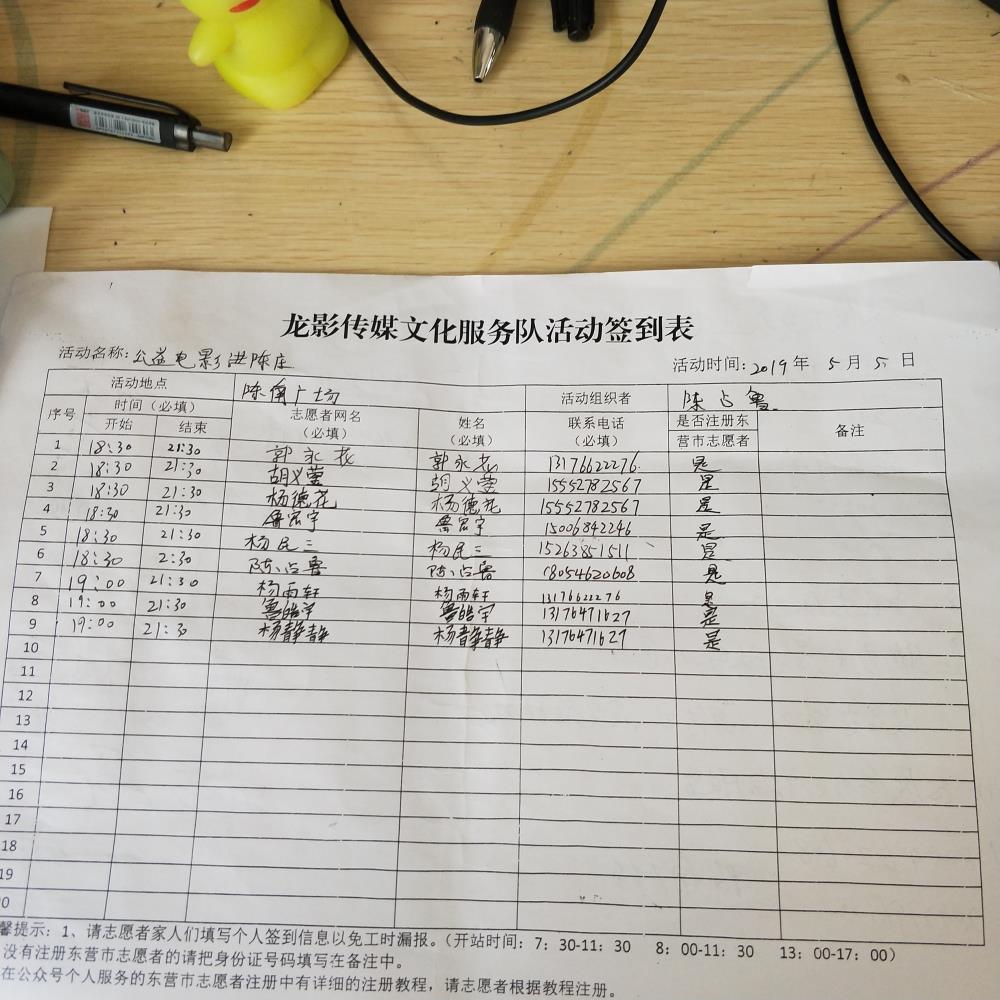 龙影传媒文化服务队活动签到表
活动名称: 公益电影进陈庄 活动时间: 2019 年 5 月 5 日
活动地点 广场 活动组织者 陈占鲁
序号 时间（必填） 志愿者网名（必填） 姓名（必填） 联系电话（必填） 是否注册东营市志愿者 备注
开始 结束
1 18:30 21:30 郭永花 郭永花 13176622276 是
2 18:30 21:30 胡义莹 胡义莹 15552782567 是
3 18:30 21:30 杨德花 杨德花 15552782567 是
4 18:30 21:30 鲁宏宇 鲁宏宇 15006842246 是
5 18:30 21:30 杨民三 杨民三 15263851511 是
6 18:30 2:30 陈占鲁 陈占鲁 18054620608 是
7 19:00 21:30 杨雨轩 杨雨轩 1317622276 是
8 19:00 21:30 鲁皓宇 鲁皓宇 13176471627 是
9 19:00 21:30 杨静静 杨静静 13176471627 是
10
11
12
13
14
15
16
17
18
19
0
馨提示: 1、请志愿者家人们填写个人签到信息以免工时漏报。（开站时间: 7: 30-11: 30 8: 00-11: 30 13: 00-17: 00）
没有注册东营市志愿者的请把身份证号码填写在备注中。
在公众号个人服务的东营市志愿者注册中有详细的注册教程，请志愿者根据教程注册。